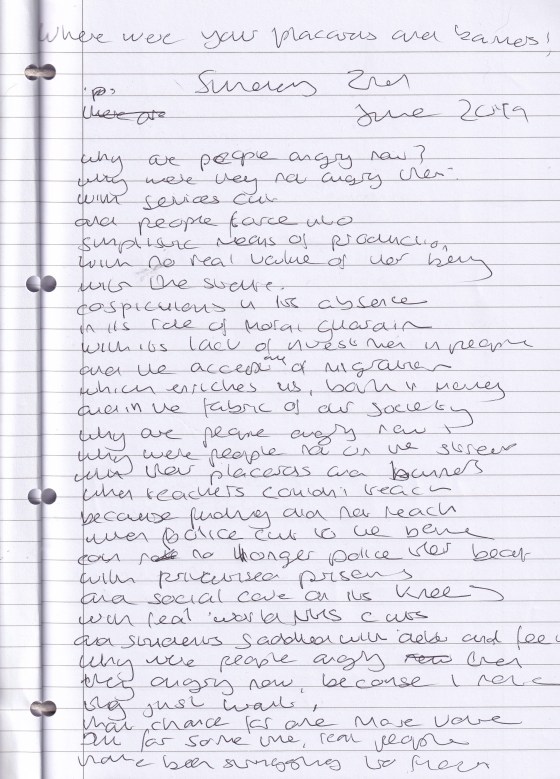 Where were your placards and banners!
Sunday 2nd
June 2019
why are people angry now?
why were they not angry then
with services cut
and people force into
simplistic means of production,
with no real value of their being
with the state.
cospiciuous in its absence
in its role of moral guardian
with its lack of investment in people
and the acceptance of migration
which enriches us, both in money
and in the fabric of our society
why are people angry now
why were people not on the streets
with their placards and banners
when teachers couldn't teach
because funding did not reach
when police cut to the bone
can no longer police their beat
with privatised prisons
and social care on its knees
with real world NHS cuts
and students saddled with debt and fees
why were people angry then
they angry now, because I have
long just waited,
that chance for one more vote
But for some the, real people
have been struggling to